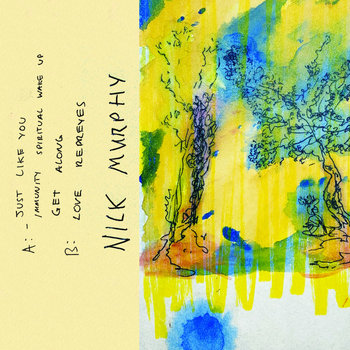 A: - JUST LIKE YOU
IMMUNITY SPIRITUAL WAKE UP
GET ALONG
B: LOVE REDREYES
NICK MURPHY